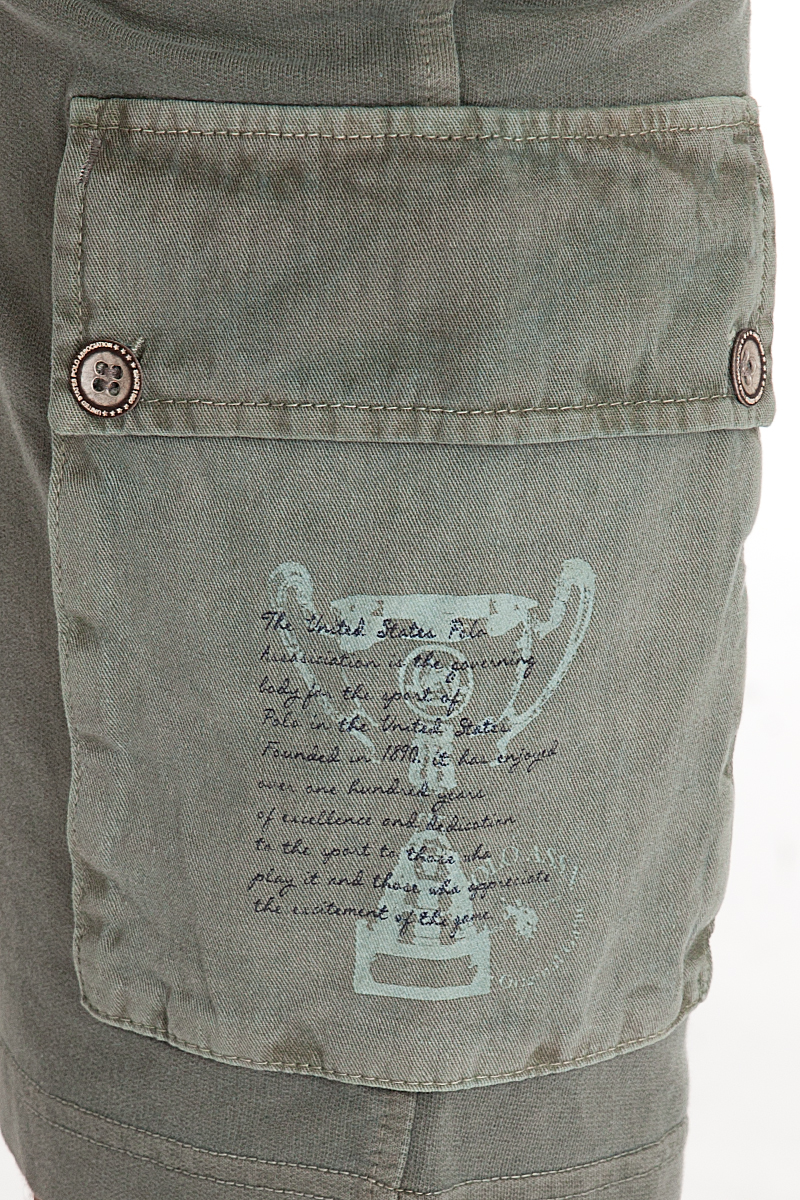 UNITED STATES POLO ASSOCIATION ★★★★ SINCE 1890 ★★★★
The United States Polo
Association is the governing
body for the sport of
Polo in the United States
Founded in 1890, it has enjoyed
over one hundred years
of excellence and dedication
to the sport to those who
play it and those who appreciate
the excitement of the game